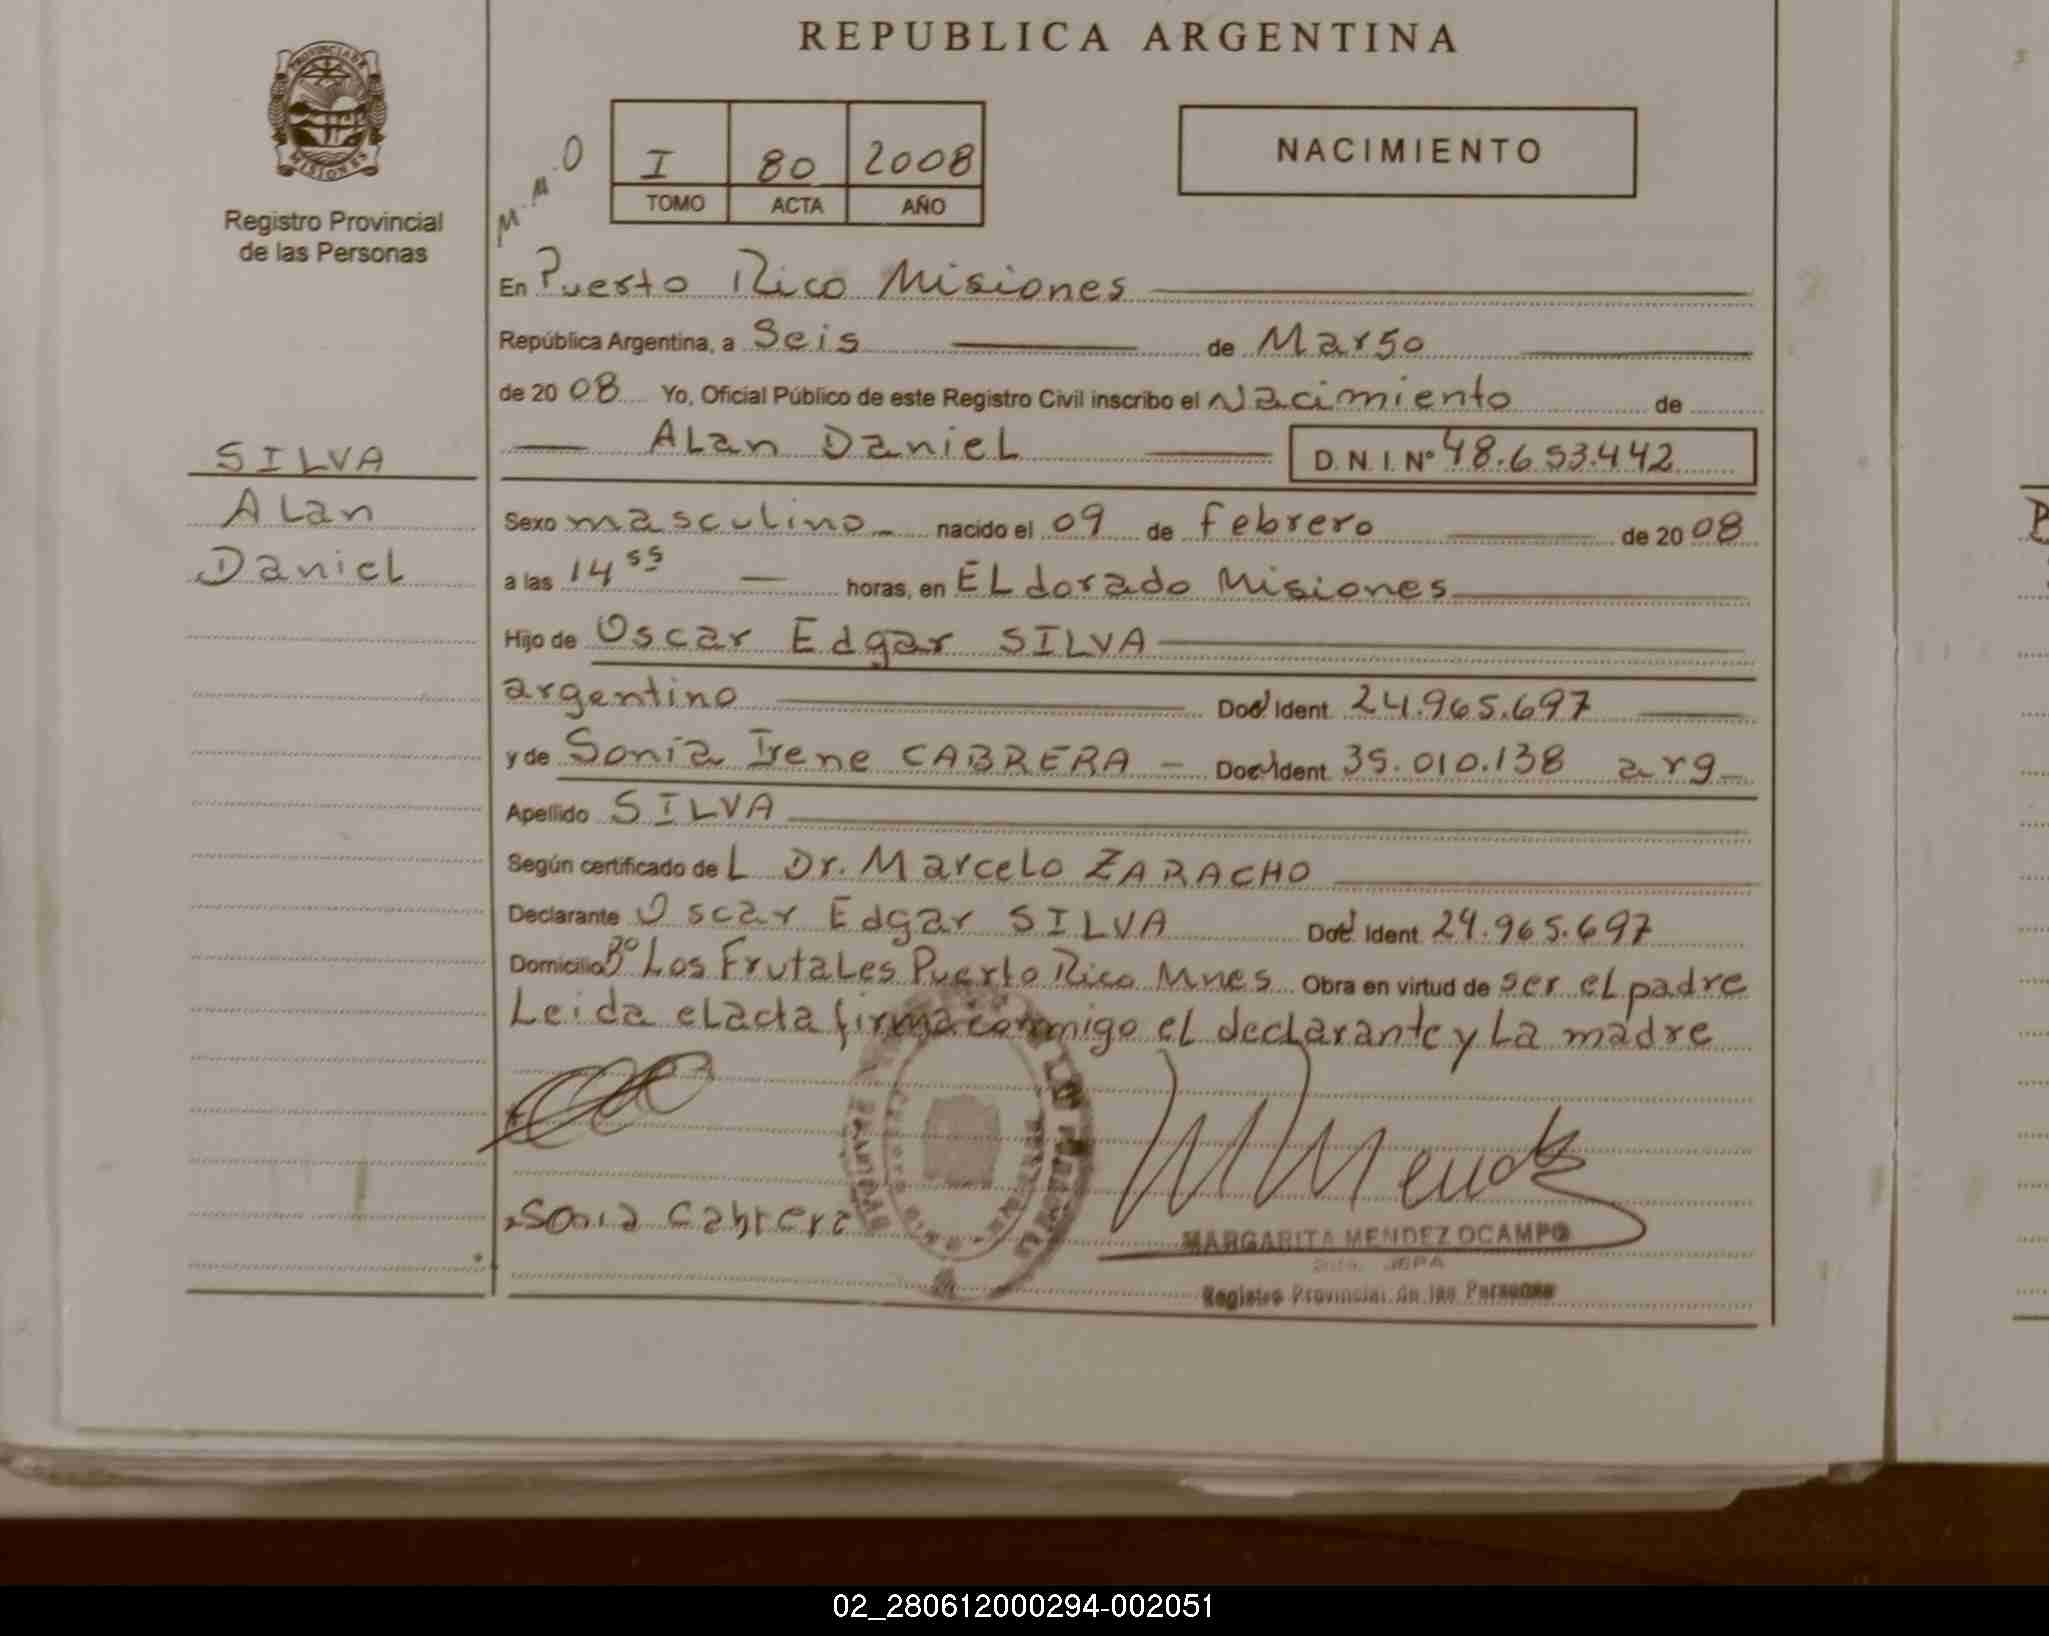 REPUBLICA ARGENTINA
PROVINCIA DE
MISIONES
Registro Provincial
de las Personas
M.M.O
I 80 2008
TOMO ACTA AÑO
NACIMIENTO
En Puerto Rico Misiones
República Argentina, a Seis de Marso
de 2008 Yo, Oficial Público de este Registro Civil inscribo el Nacimiento de
ALan DanieL D.N.I. Nº 48.653.442
SILVA
ALan
DanieL
Sexo masculino nacido el 09 de Febrero de 2008
a las 14 55 horas, en ELdorado Misiones
Hijo de Oscar Edgar SILVA
argentino Doc. Ident. 24.965.697
y de Sonia Irene CABRERA - Doc. Ident. 35.010.138 arg
Apellido SILVA
Según certificado de L Dr. Marcelo ZARACHO
Declarante Oscar Edgar SILVA Doc. Ident. 24.965.697
Domicilio Bº Los FrutaLes Puerto Rico Mnes Obra en virtud de ser eL padre
Leida eLacta firma conmigo eL decLarante y La madre
Sonia Cabrera
MARGARITA MENDEZ OCAMPO
Registro Provincial de las Personas
02_280612000294-002051